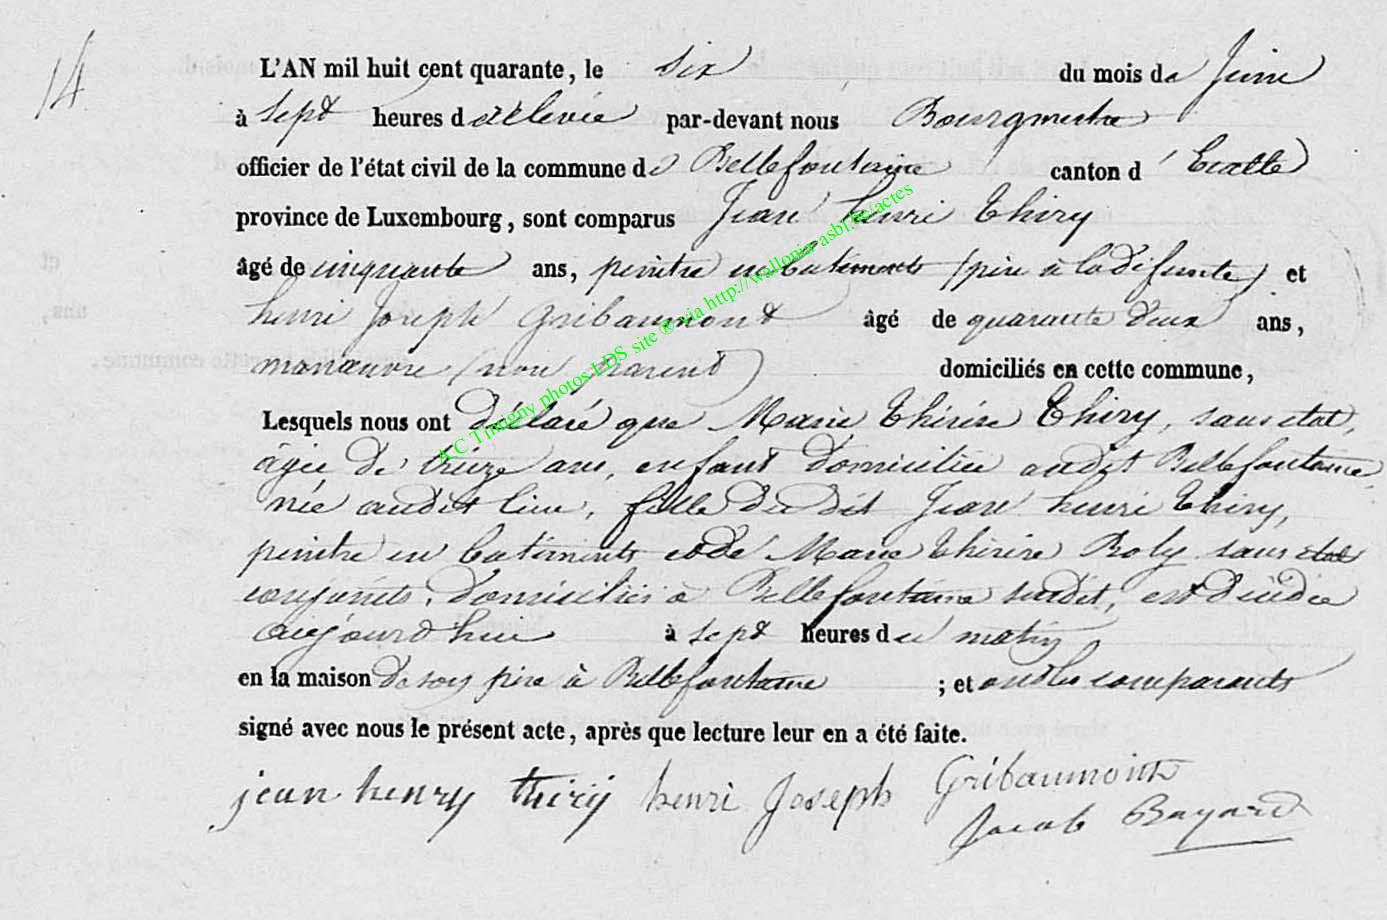 14
L'AN mil huit cent quarante, le six du mois de Juin
à sept heures de relevée par-devant nous Bourgmestre
officier de l'état civil de la commune de Bellefontaine canton d'Etalle
province de Luxembourg, sont comparus Jean henri Thiry
âgé de cinquante ans, peintre en batiments (père à la défunte) et
henri Joseph Gribaumont âgé de quarante deux ans,
manœuvre (non parent) domiciliés en cette commune,
Lesquels nous ont déclaré que Marie Thérèse Thiry, sans état,
âgée de treize ans, enfant domiciliée audit Bellefontaine
née audit lieu, fille du dit Jean henri Thiry,
peintre en batiments et de Marie Thérèse Roly sans état
conjoints, domiciliés à Bellefontaine susdit, est décédée
aujourd'hui à sept heures du matin
en la maison de son père à Bellefontaine ; et ont les comparants
signé avec nous le présent acte, après que lecture leur en a été faite.
jean henry thiry henri Joseph Gribaumont
Jacob Bayard
A C Tintigny photos LDS site @ via http://wallonia-asbl.be/actes